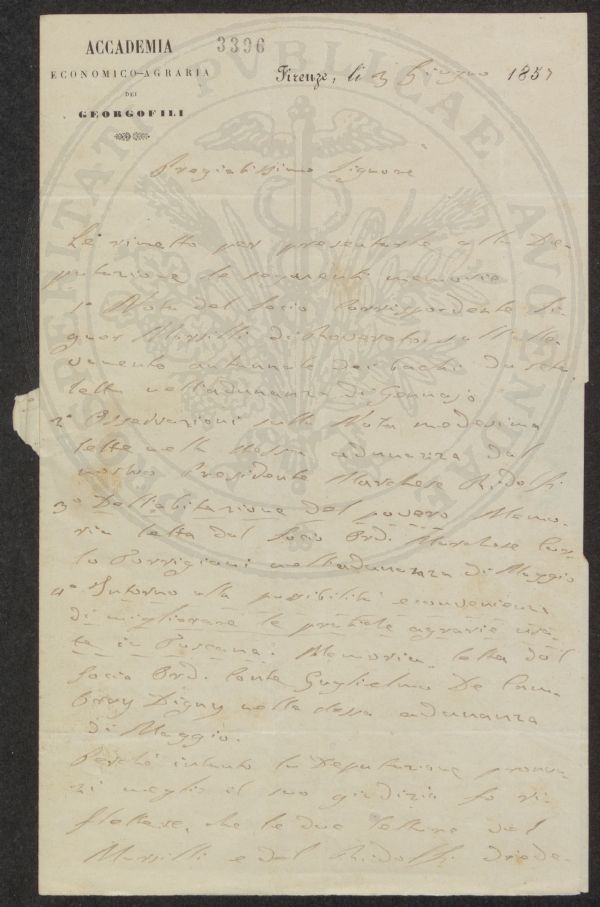 ACCADEMIA
ECONOMICO-AGRARIA
DEI
GEORGOFILI
3396
Firenze, li 3 Giugno 1857
Pregiatissimo Signore
Le rimetto per presentarle alla De-
putazione le seguenti memorie
1° Nota del Socio Corrispondente Si-
gnor Marsilli di Rovereto sull'alle-
vamento autunnale dei bachi da seta
letta nell'adunanza di Gennajo
2° Osservazioni sulla Nota medesima
lette nella stessa adunanza dal
nostro Presidente Marchese Ridolfi
3° Dell'abitazione del povero Memo-
ria letta dal Socio Ord. Marchese Car-
lo Torrigiani nell'adunanza di Maggio
4° Intorno alla possibilità e convenienza
di migliorare le pratiche agrarie usa-
te in Toscana: Memoria letta dal
Socio Ord. Conte Guglielmo De Cam-
bray Digny nella stessa adunanza
di Maggio.
Perchè intanto la Deputazione pronun-
zi meglio il suo giudizio fo ri-
flettere, che le due letture del
Marsilli e del Ridolfi